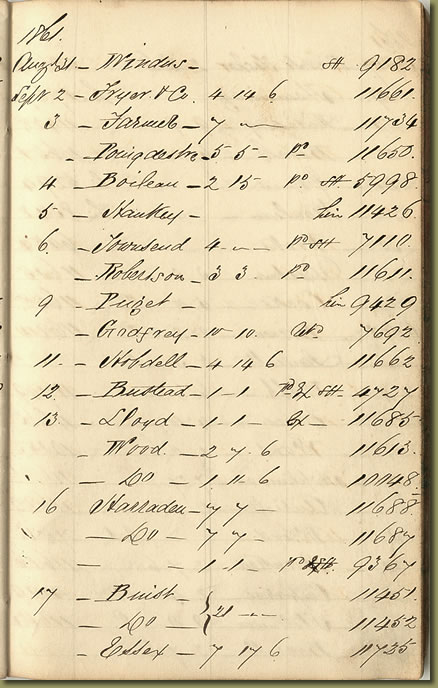 1861.
Augt 31 – Windus – SH 9182
Sept 2 – Fryer & Co. 4 14 6 11661.
3 – Farmer – 7 – – 11734
– Poingdestre – 5 5 – Po 11650.
4 – Boileau – 2 15 Po SH – 5998
5 – Hankey – 11426
6. – Townsend 4 – – Po SH 7110.
– Robertson – 3 3. Po 11611.
9 – Puget – 9429
– Godfrey – 10 10. 7692
11. – Hobdell – 4 14 6 11662
12. – Busteed – 1 – 1 – Po Ex SH – 4727
13. – Lloyd – 1 – 1 Ex – 11685
– Wood – 2 7. 6 11613.
– Do – 1 11 6 10048.
16 – Harraden – 7 7 – 11688
– Do – 7 7 – 11687
– 1 1 – Po 9367
17 – Buist – 11451.
– Do – 21 – – 11452
– Essex – 7 17 6 11735